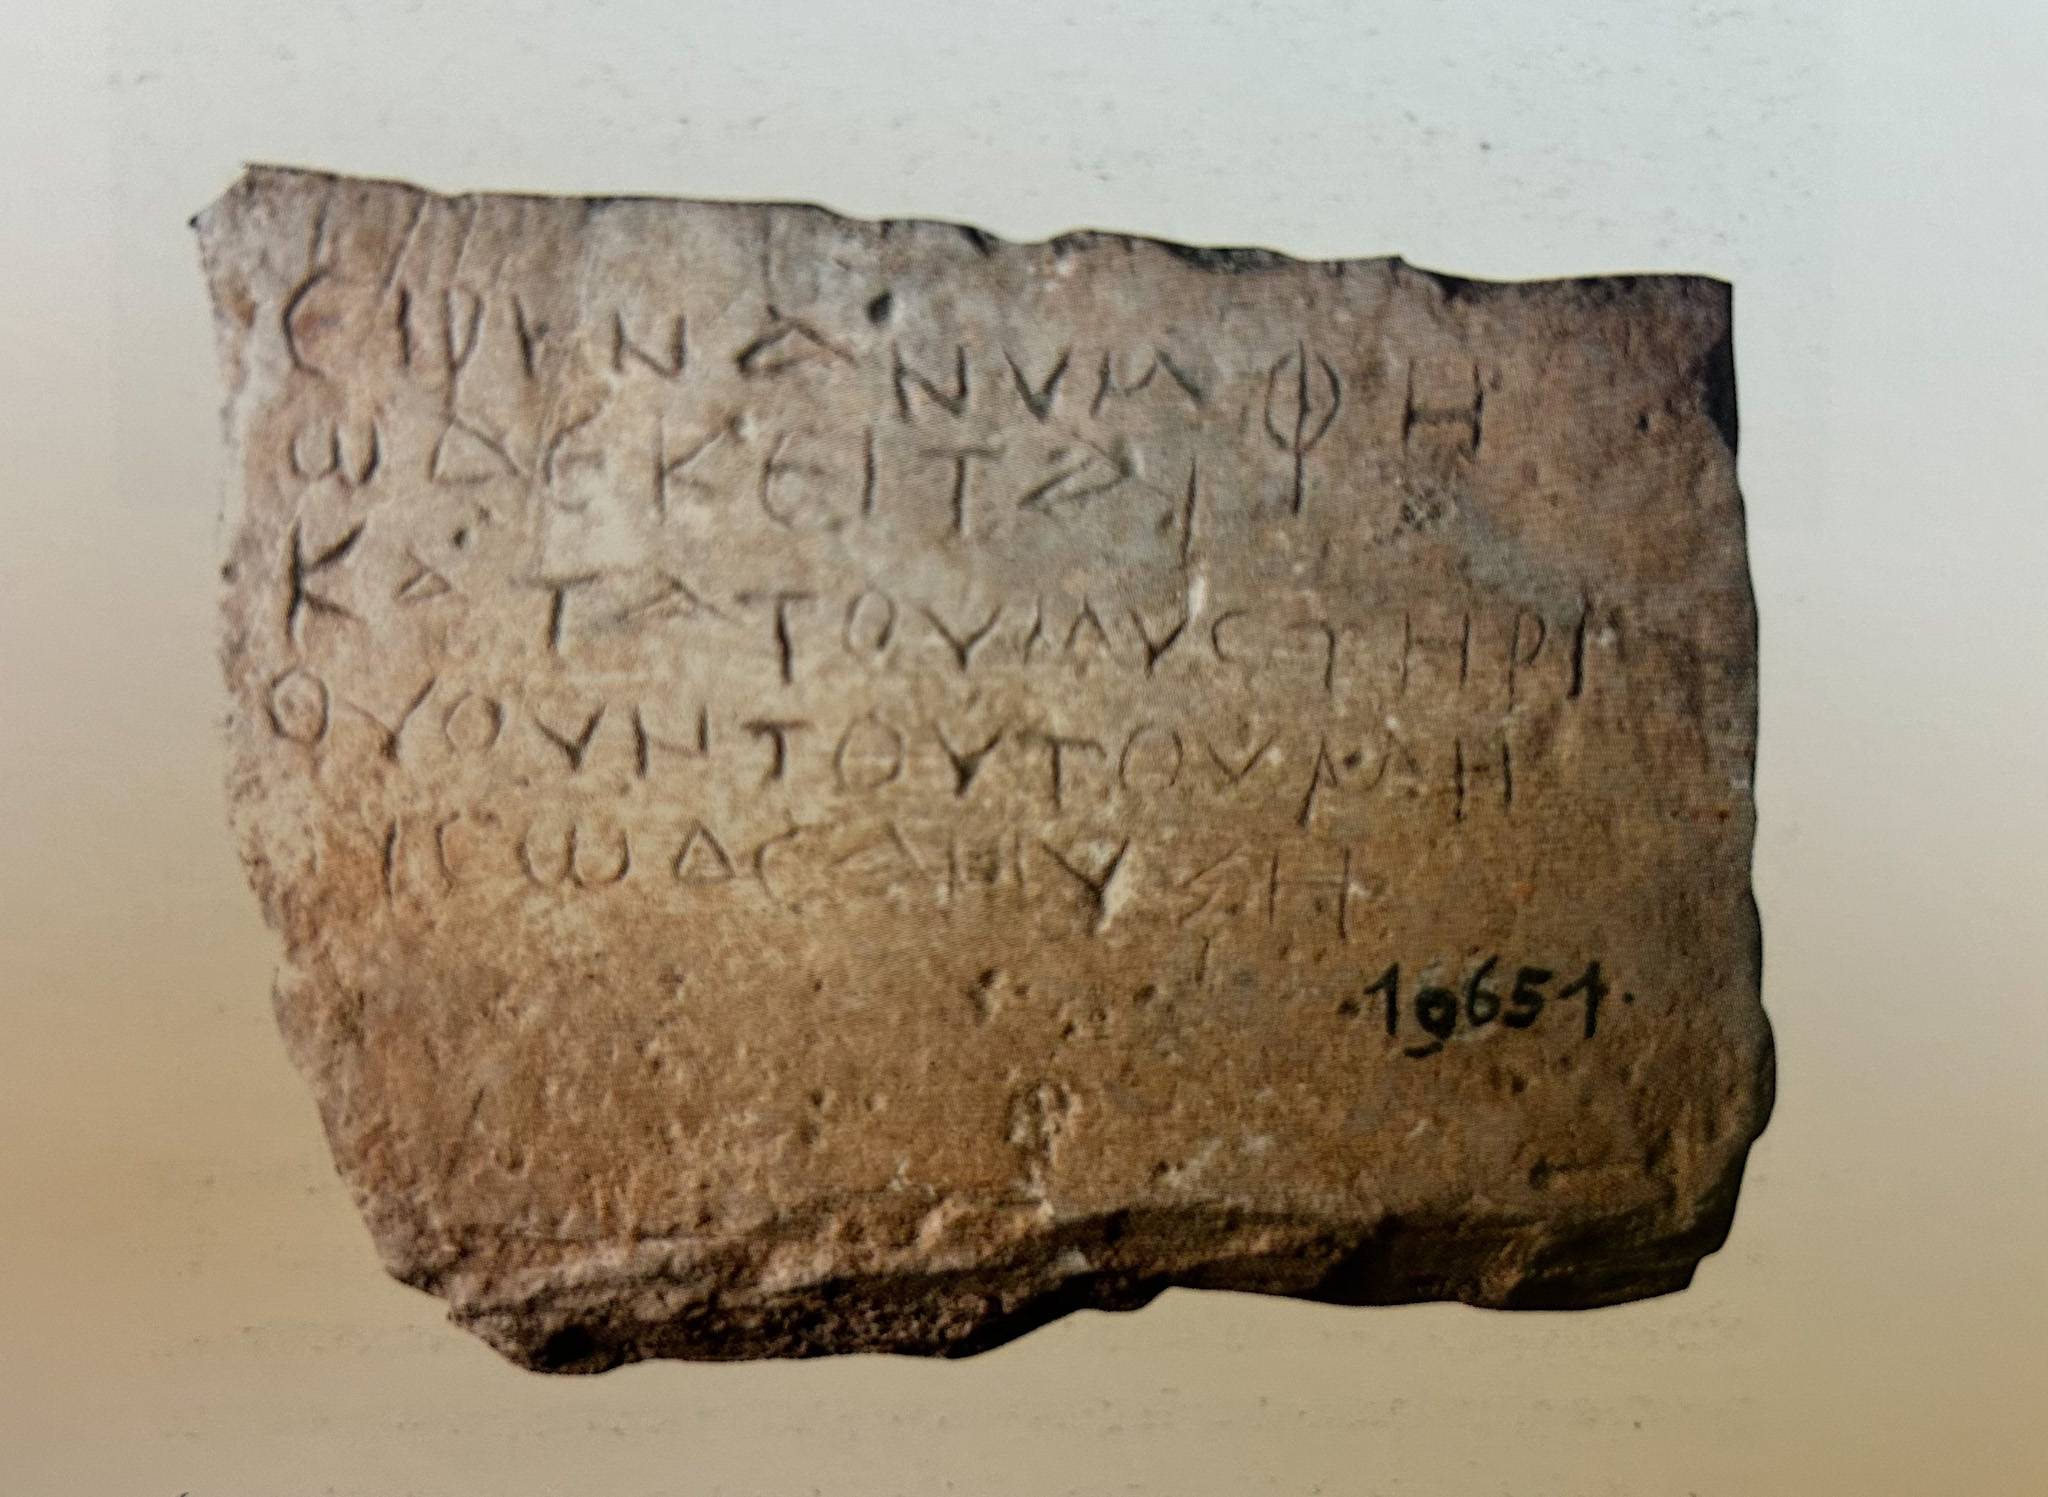 CΙΡΙΝΑ ΝΥΜΦΗ
ωΔΕ ΚΕΙΤΑΙ
ΚΑΤΑ ΤΟΥ ΜΥCΤΗΡΙ
ΟΥ ΟΥΝ ΤΟΥΤΟΥ ΜΗ
ΙC ωΔΕ ΑΝΥΞΗ
19651.